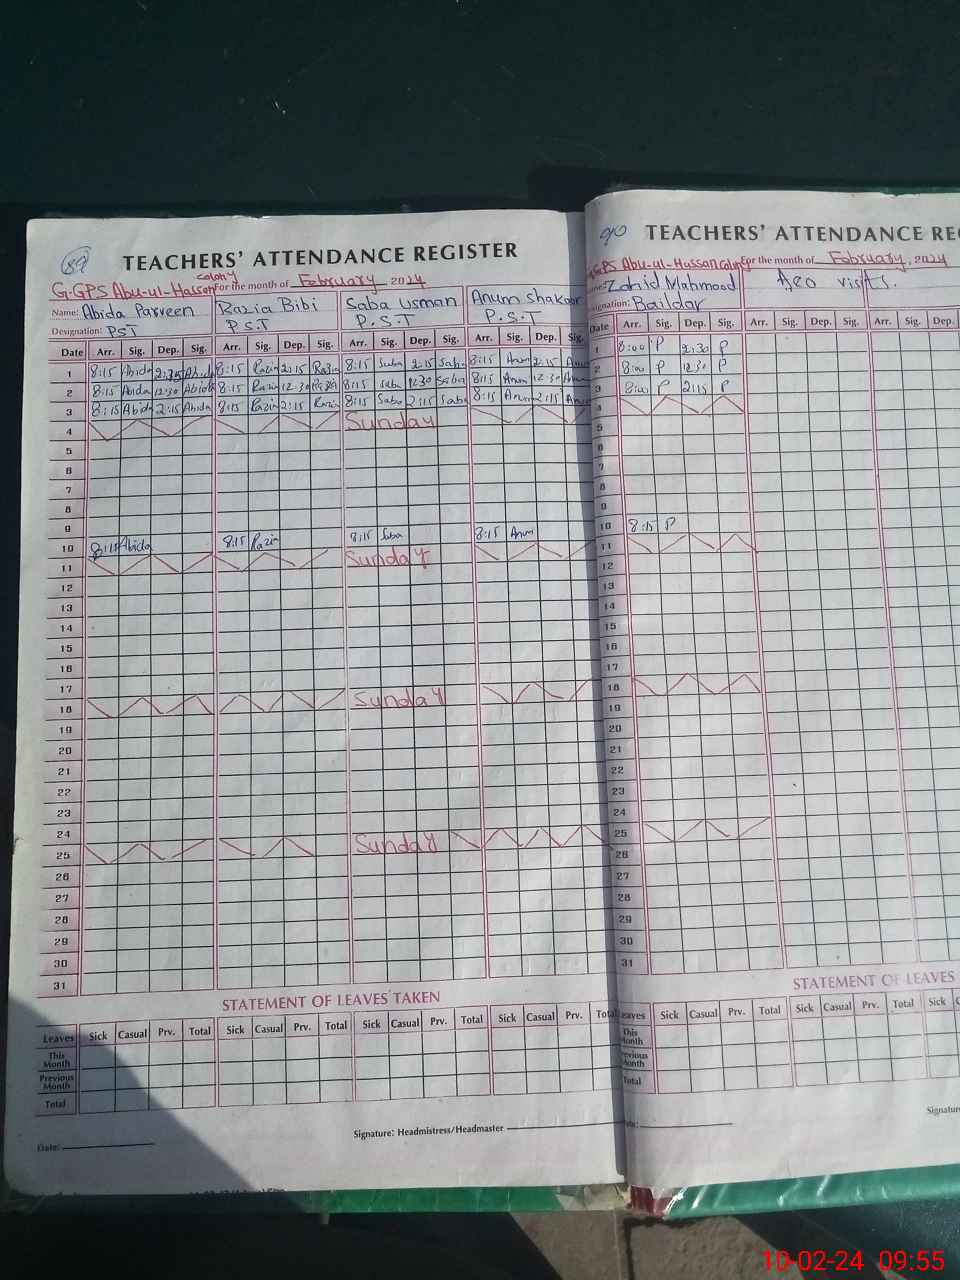 89
TEACHERS' ATTENDANCE REGISTER
G.GPS Abu-ul-Hassan colony For the month of February, 2024
Name: Abida Parveen Razia Bibi Saba Usman Anum Shakoor
Designation: PST P.S.T P.S.T P.S.T
Date Arr. Sig. Dep. Sig. Arr. Sig. Dep. Sig. Arr. Sig. Dep. Sig. Arr. Sig. Dep. Sig.
1 8:15 Abida 2:15 Abida 8:15 Razia 2:15 Razia 8:15 Saba 2:15 Saba 8:15 Anum 2:15 Anum
2 8:15 Abida 12:30 Abida 8:15 Razia 12:30 Razia 8:15 Saba 12:30 Saba 8:15 Anum 12:30 Anum
3 8:15 Abida 2:15 Abida 8:15 Razia 2:15 Razia 8:15 Saba 2:15 Saba 8:15 Anum 2:15 Anum
4 Sunday
5
6
7
8
9
10 8:15 Abida 8:15 Razia 8:15 Saba 8:15 Anum
11 Sunday
12
13
14
15
16
17
18 Sunday
19
20
21
22
23
24
25 Sunday
26
27
28
29
30
31
STATEMENT OF LEAVES TAKEN
Leaves Sick Casual Prv. Total Sick Casual Prv. Total Sick Casual Prv. Total Sick Casual Prv. Total
This Month
Previous Month
Total
Signature: Headmistress/Headmaster
Date:
90
TEACHERS' ATTENDANCE RE
G.GPS Abu-ul-Hussan colony For the month of February, 2024
Name: Zahid Mahmood Aeo visits.
Designation: Baildar
Date Arr. Sig. Dep. Sig. Arr. Sig. Dep. Sig. Arr. Sig. Dep.
1 8:00 P 2:30 P
2 8:00 P 12:30 P
3 8:00 P 2:15 P
4
5
6
7
8
9
10 8:15 P
11
12
13
14
15
16
17
18
19
20
21
22
23
24
25
26
27
28
29
30
31
STATEMENT OF LEAVES
Leaves Sick Casual Prv. Total Sick Casual Prv. Total Sick
This Month
Previous Month
Total
Signature
Date:
10-02-24 09:55